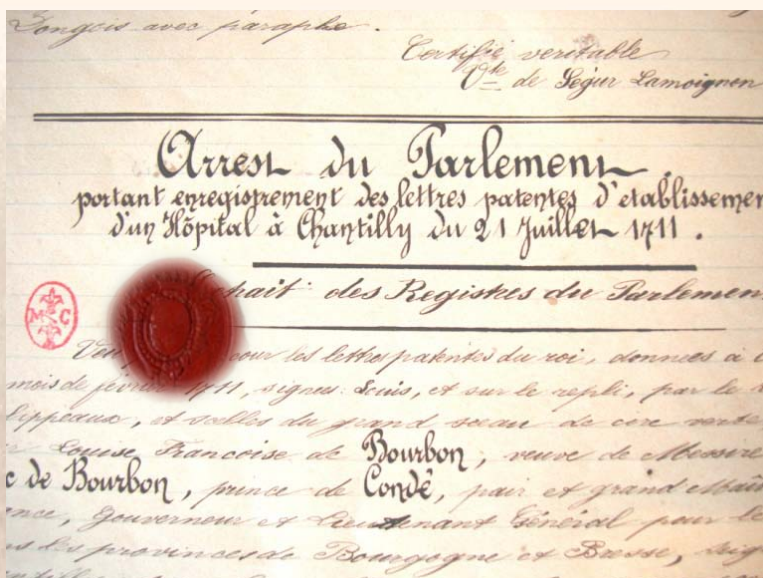 Longois avec paraphe.
Certifié veritable
Vte de Ségur Lamoignon
Arrest du Parlement
portant enregistrement des lettres patentes d'etablissemen
d'un Hôpital à Chantilly du 21 Juillet 1711.
trait des Registres du Parlemen
M C
Veu pour les lettres patentes du roi, données à
mois de février 1711, signées: Louis, et sur le repli, par le
lippeaux, et scellés du grand sceau de cire verte
Louise Francoise de Bourbon, veuve de Messire
c de Bourbon, prince de Condé, pair et grand Maî
ance, Gouverneur et Lieutenant Général pour le
s les provinces de Bourgogne et Bresse, seig